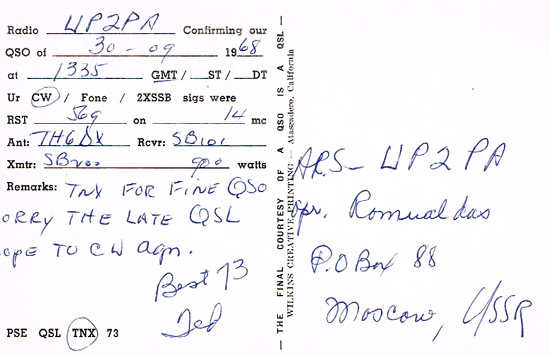 Radio UP2PA Confirming our
QSO of 30-09 1968
at 1335 GMT / __ST / __DT
Ur CW / Fone / 2XSSB sigs were
RST 569 on 14 mc
Ant: TH6DX Rcvr: SB101
Xmtr: SB200 900 watts
Remarks: TNX FOR FINE QSO
ORRY THE LATE QSL
OPE TO CW AGN.
Best 73
Ted
PSE QSL TNX 73
— THE FINAL COURTESY OF A QSO IS A QSL —
WILKINS CREATIVE PRINTING — Atascadero, California
ARS— UP2PA
opr. Romualdas
P.O Box 88
Moscow, USSR